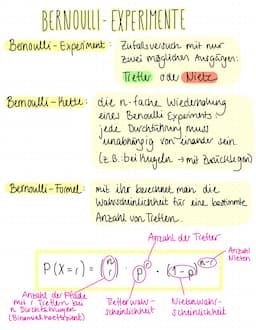 BERNOULLI-EXPERIMENTE
Bernoulli-Experiment: Zufallsversuch mit nur
zwei möglichen Ausgängen:
Treffer oder Niete
Bernoulli-Kette: die n-fache Wiederholung
eines Benoulli Experiments:
jede Durchführung muss
unabhängig von einander sein
(z.B.: bei Kugeln → mit Zurücklegen)
Bernoulli-Formel: mit ihr berechnet man die
Wahrscheinlichkeit für eine bestimmte
Anzahl von Treffern.
Anzahl der Treffer
Anzahl
Nieten
P(X=r) = (n r) · p^r · (1-p)^n-r
Anzahl der Pfade
mit r Treffern bei
n Durchführungen
(Binomialkoeffizient)
Trefferwahr-
scheinlichkeit
Nietenwahr-
scheinlichkeit